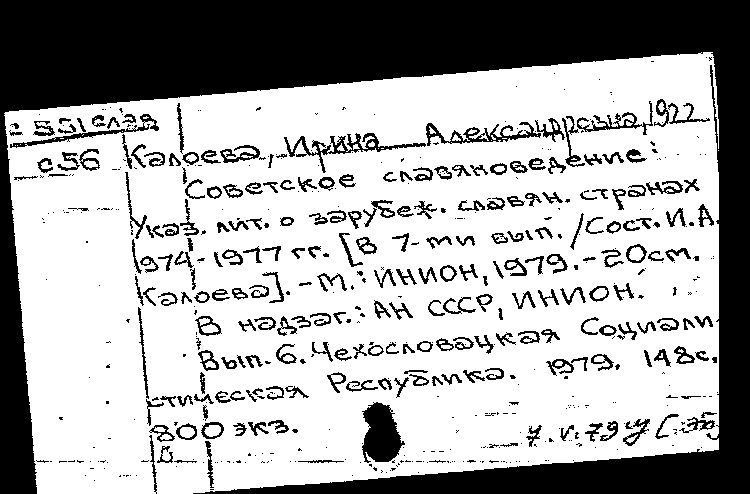 с 551 слав
с56 Калоева, Ирина Александровна, 1922
Советское славяноведение:
Указ. лит. о зарубеж. славян. странах
1974-1977 гг. [В 7-ми вып. /Сост. И.А.
Калоева]. - М.: ИНИОН, 1979. - 20см.
В надзаг.: АН СССР, ИНИОН.
Вып. 6. Чехословацкая Социали-
стическая Республика. 1979. 148с.
800 экз.
7.V.79